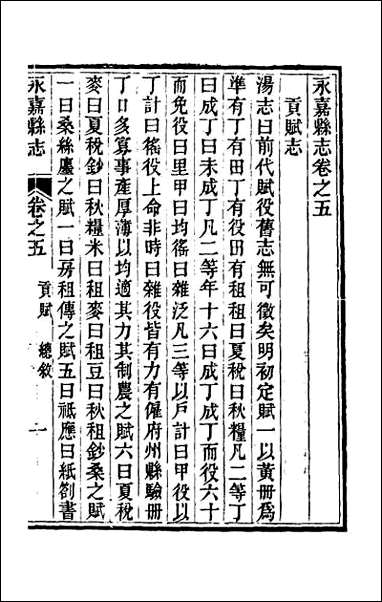 永嘉縣志卷之五
貢賦志
湯志曰前代賦役舊志無可徵矣明初定賦一以黃冊爲
準有丁有田丁有役田有租租曰夏稅曰秋糧凡二等丁
曰成丁曰未成丁凡二等年十六曰成丁成丁而役六十
而免役曰里甲曰均徭曰雜泛凡三等以戶計曰甲役以
丁計曰徭役上命非時曰雜役皆有力有僱府州縣驗冊
丁口多寡事產厚薄以均適其力其制農之賦六曰夏稅
麥曰夏稅鈔曰秋糧米曰租麥曰租豆曰秋租鈔桑之賦
一曰桑絲廛之賦一曰房租傳之賦五曰祗應曰紙劄書
永嘉縣志
卷之五
貢賦
總敘
一